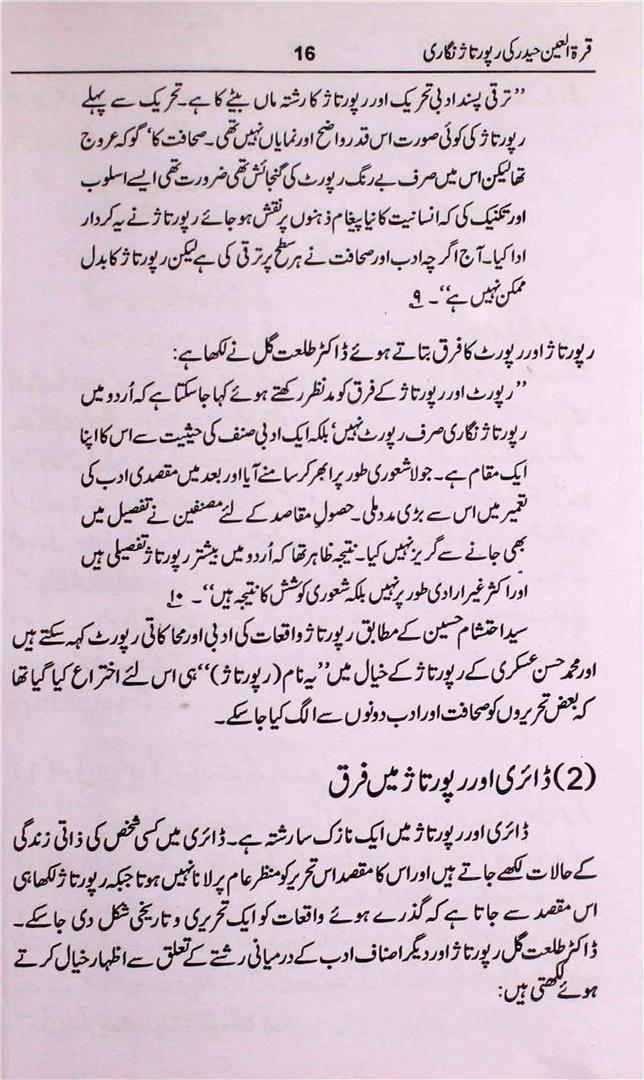 قرۃ العین حیدر کی رپورتاژ نگاری 16
’’ترقی پسند ادبی تحریک اور رپورتاژ کا رشتہ ماں بیٹے کا ہے۔ تحریک سے پہلے
رپورتاژ کی کوئی صورت اس قدر واضح اور نمایاں نہیں تھی۔ صحافت کا‘ گو کہ عروج
تھا لیکن اس میں صرف بے رنگ رپورٹ کی گنجائش تھی ضرورت تھی ایسے اسلوب
اور تکنیک کی کہ انسانیت کا نیا پیغام ذہنوں پر نقش ہو جائے رپورتاژ نے یہ کردار
ادا کیا۔ آج اگرچہ ادب اور صحافت نے ہر سطح پر ترقی کی ہے لیکن رپورتاژ کا بدل
ممکن نہیں ہے‘‘۔ ۹
رپورتاژ اور رپورٹ کا فرق بتاتے ہوئے ڈاکٹر طلعت گل نے لکھا ہے:
’’رپورٹ اور رپورتاژ کے فرق کو مدنظر رکھتے ہوئے کہا جا سکتا ہے کہ اُردو میں
رپورتاژ نگاری صرف رپورٹ نہیں‘ بلکہ ایک ادبی صنف کی حیثیت سے اس کا اپنا
ایک مقام ہے۔ جو لاشعوری طور پر ابھر کر سامنے آیا اور بعد میں مقصدی ادب کی
تعمیر میں اس سے بڑی مدد ملی۔ حصولِ مقاصد کے لئے مصنفین نے تفصیل میں
بھی جانے سے گریز نہیں کیا۔ نتیجہ ظاہر تھا کہ اُردو میں بیشتر رپورتاژ تفصیلی ہیں
اور اکثر غیر ارادی طور پر نہیں بلکہ شعوری کوشش کا نتیجہ ہیں‘‘۔ ۱۰
سید احتشام حسین کے مطابق رپورتاژ واقعات کی ادبی اور محاکاتی رپورٹ کہہ سکتے ہیں
اور محمد حسن عسکری کے رپورتاژ کے خیال میں ’’یہ نام (رپورتاژ)‘‘ ہی اس لئے اختراع کیا گیا تھا
کہ بعض تحریروں کو صحافت اور ادب دونوں سے الگ کیا جا سکے۔
(2) ڈائری اور رپورتاژ میں فرق
ڈائری اور رپورتاژ میں ایک نازک سا رشتہ ہے۔ ڈائری میں کسی شخص کی ذاتی زندگی
کے حالات لکھے جاتے ہیں اور اس کا مقصد اس تحریر کو منظر عام پر لانا نہیں ہوتا جبکہ رپورتاژ لکھا ہی
اس مقصد سے جاتا ہے کہ گذرے ہوئے واقعات کو ایک تحریری و تاریخی شکل دی جا سکے۔
ڈاکٹر طلعت گل رپورتاژ اور دیگر اصناف ادب کے درمیانی رشتے کے تعلق سے اظہار خیال کرتے
ہوئے لکھتی ہیں: